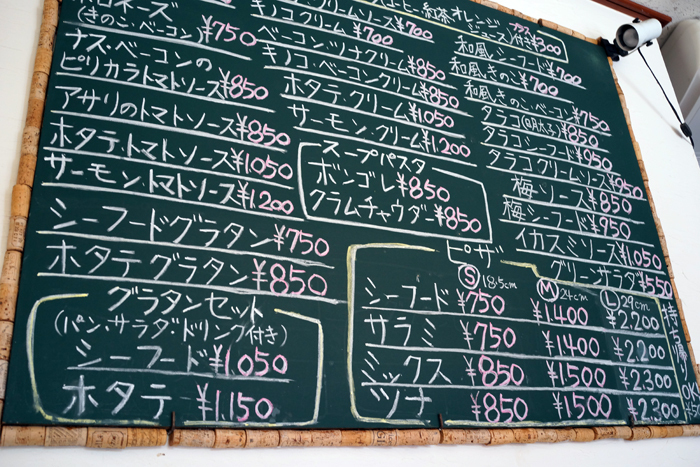 (きのこ・ベーコン) ¥750
ナス・ベーコンの
ピリカラトマトソース ¥850
アサリのトマトソース ¥850
ホタテ・トマトソース ¥1,050
サーモン・トマトソース ¥1,200
シーフードグラタン ¥750
ホタテグラタン ¥850
グラタンセット
(パン・サラダドリンク付き)
シーフード ¥1,050
ホタテ ¥1,150
クリームソース ¥700
キノコクリーム ¥700
ベーコン・ツナクリーム ¥850
キノコ・ベーコンクリーム ¥850
ホタテ・クリーム ¥1,050
サーモン・クリーム ¥1,200
スープパスタ
ボンゴレ ¥850
クラムチャウダー ¥850
紅茶 オレンジ
ジュース付き ¥300
和風シーフード ¥700
和風きのこ ¥700
和風きのこ・ベーコン ¥750
タラコ(明太子) ¥850
タラコシーフード ¥950
タラコクリームソース ¥950
梅・ソース ¥850
梅シーフード ¥950
イカスミソース ¥1,050
グリーンサラダ ¥550
ピザ
S 18.5cm M 24cm L 29cm
シーフード ¥750 ¥1,400 ¥2,200
サラミ ¥750 ¥1400 ¥2,200
ミックス ¥850 ¥1500 ¥2,300
ツナ ¥850 ¥1500 ¥2,300
持ち帰り